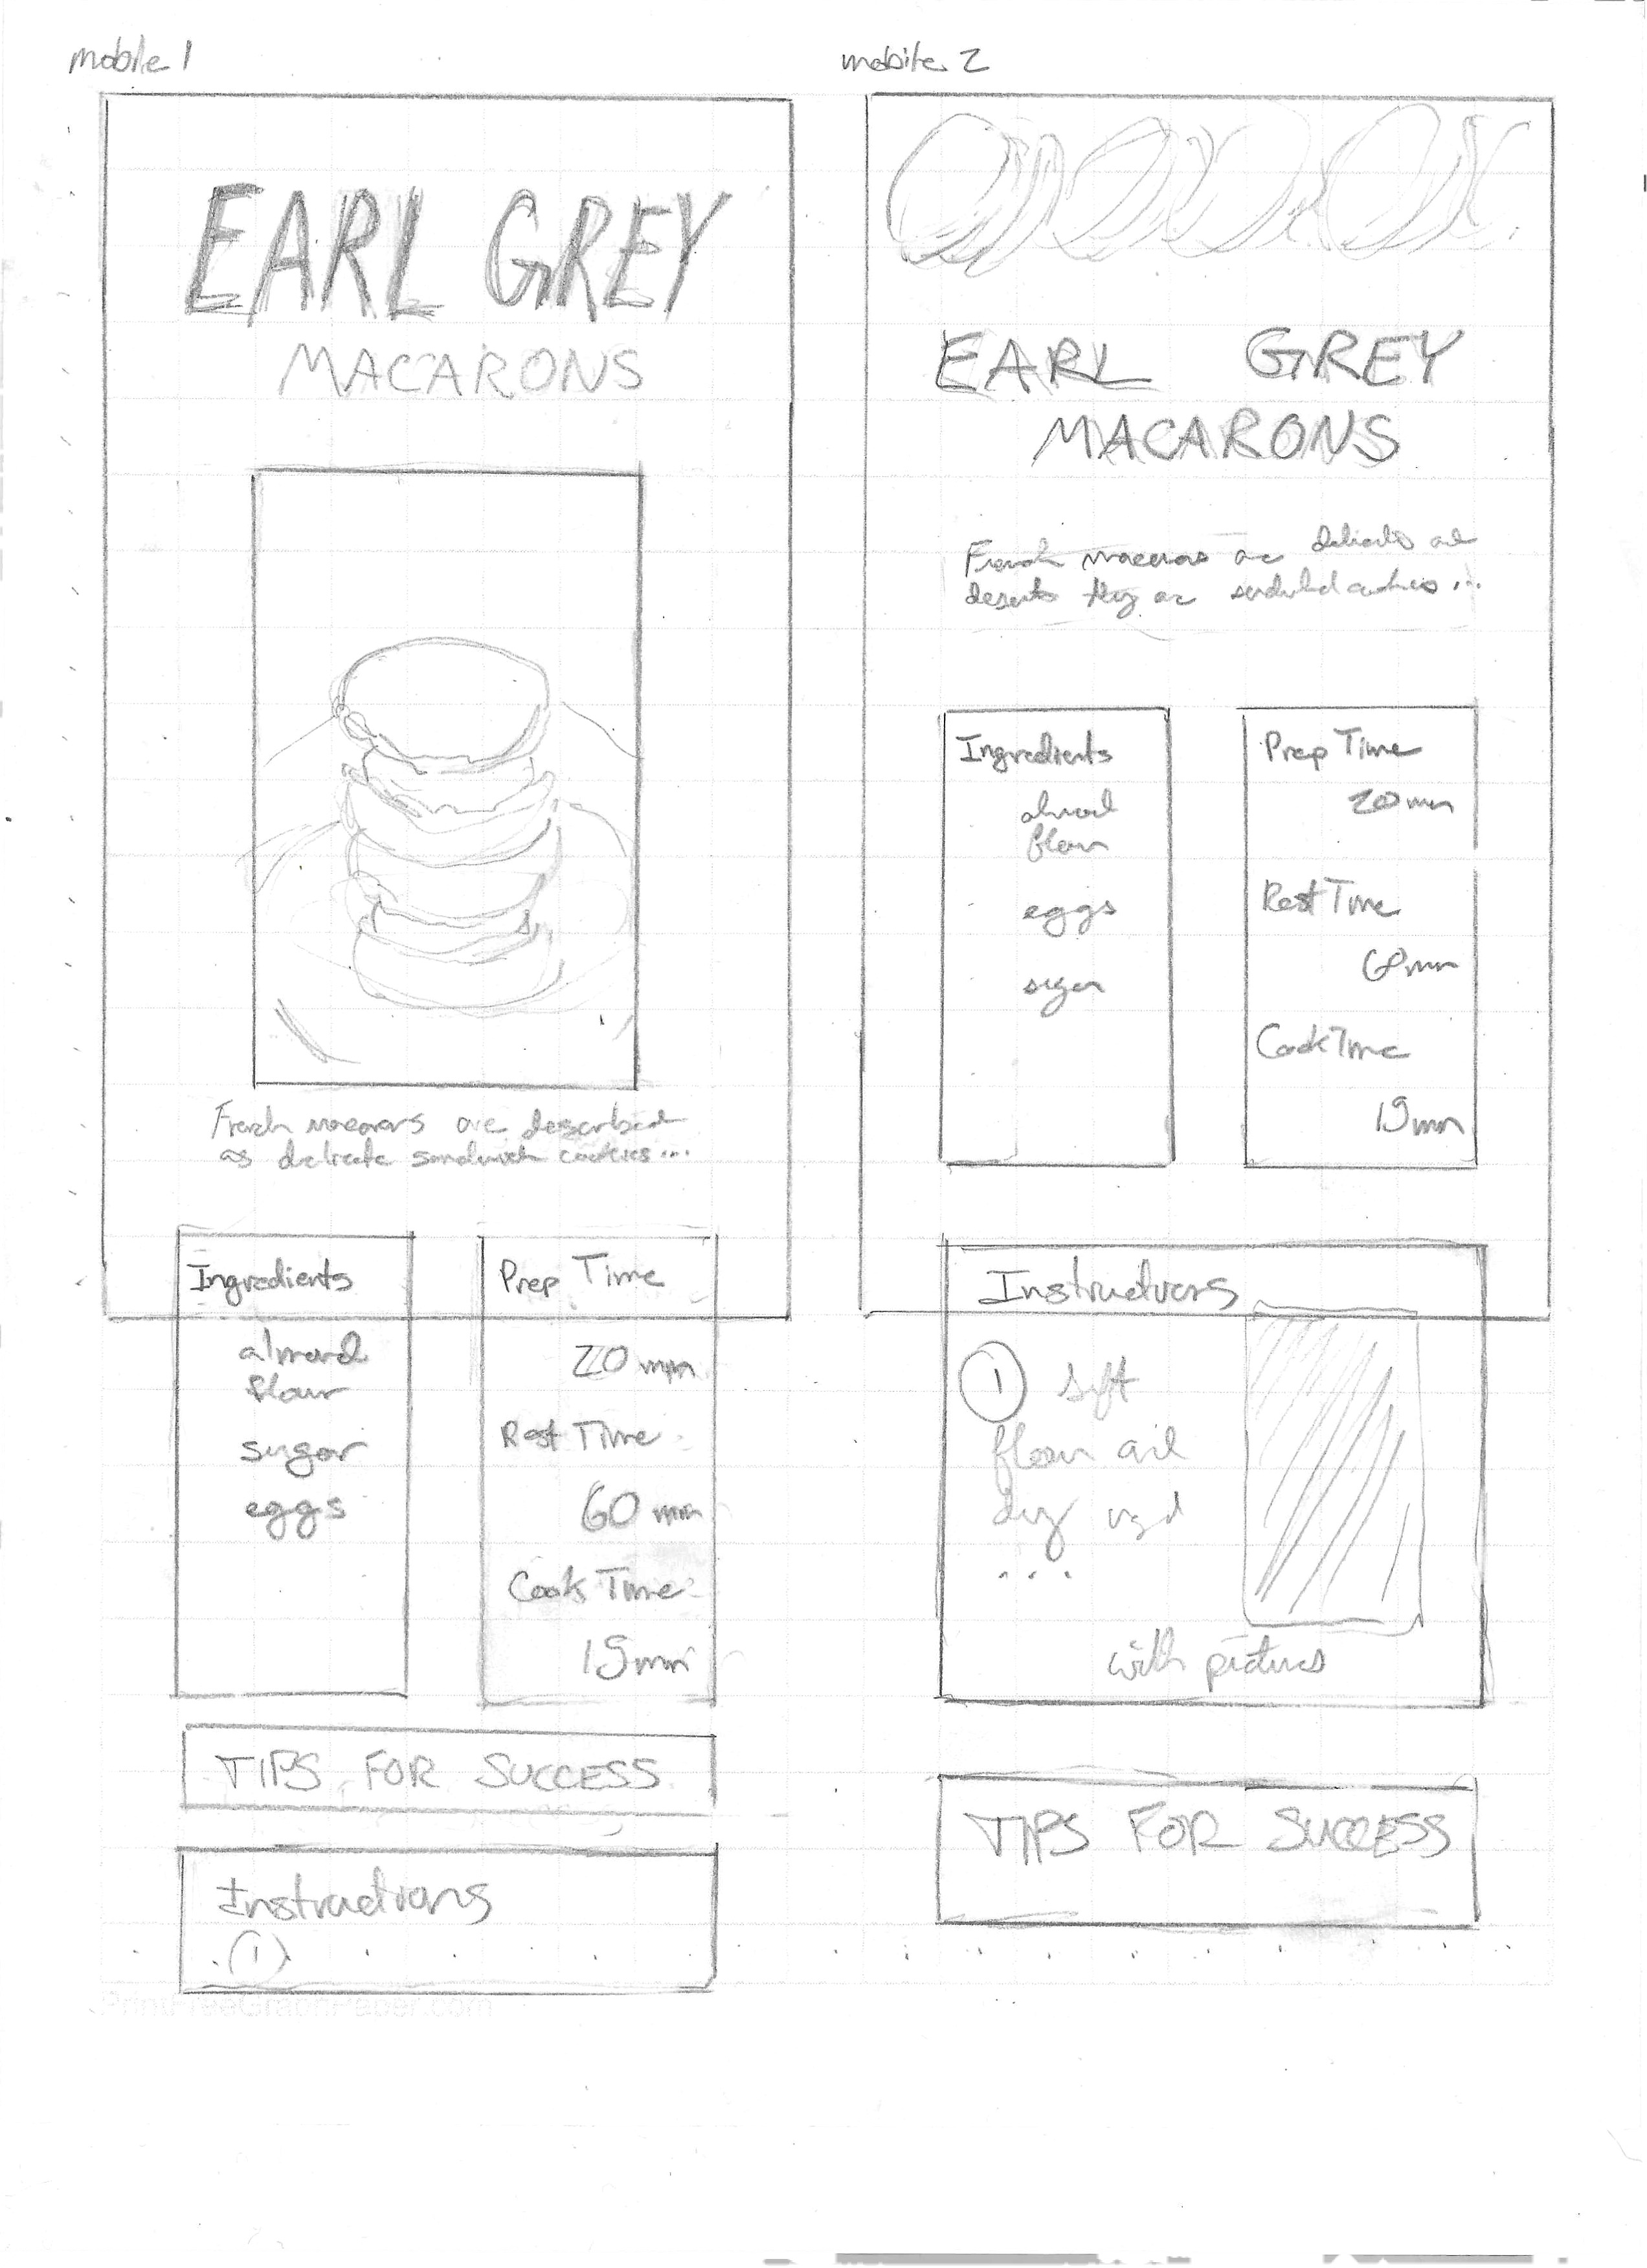 mobile 1
EARL GREY
MACARONS
French macarons are described
as delicate sandwich cookies...
Ingredients
almond
flour
sugar
eggs
Prep Time
20 min
Rest Time
60 min
Cook Time
15 min
TIPS FOR SUCCESS
Instructions
1
PrintFreeGraphPaper.com
mobile 2
EARL GREY
MACARONS
French macarons are
deserts they are cookies...
Ingredients
almond
flour
eggs
sugar
Prep Time
20 min
Rest Time
60 min
Cook Time
15 min
Instructions
1 sift
flour and
dry
...
with pictures
TIPS FOR SUCCESS